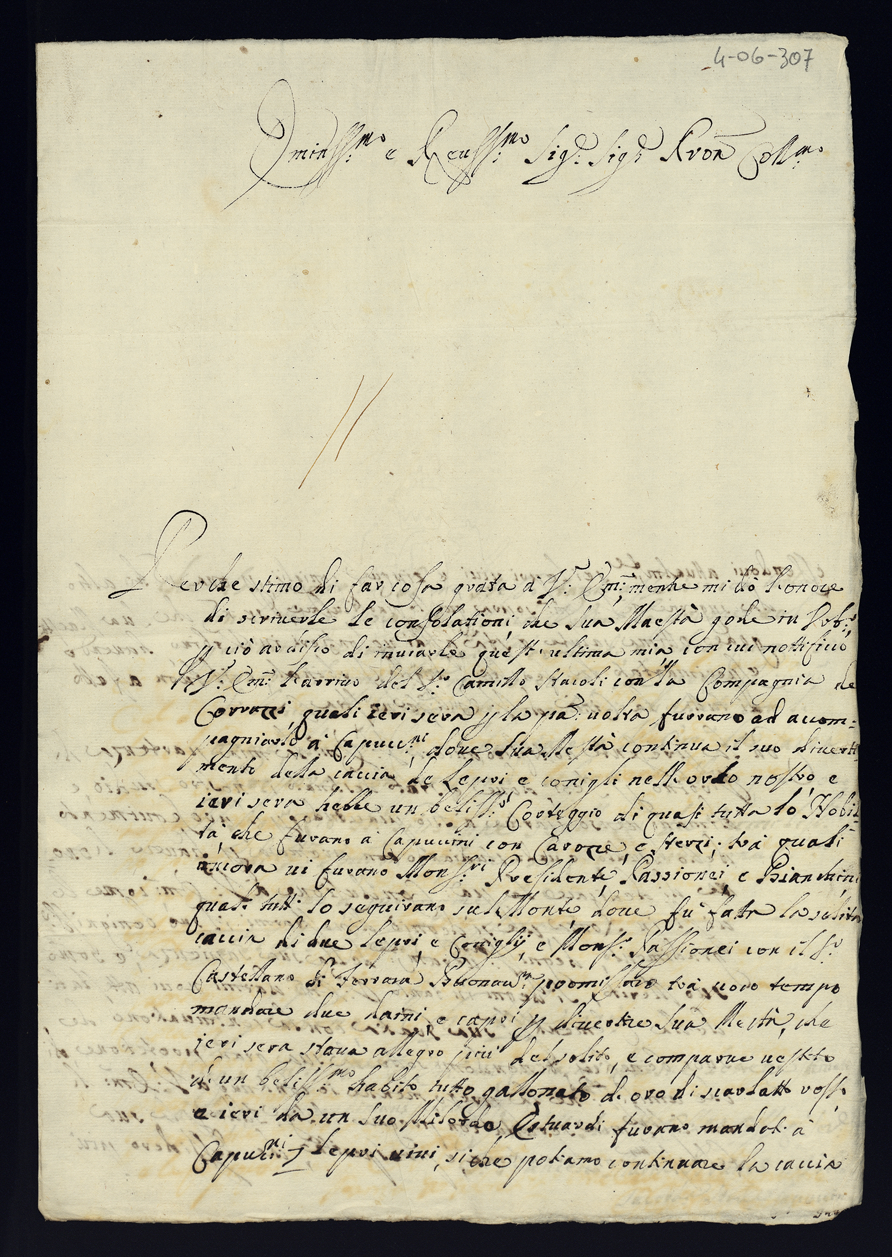 4-06-307
Emin.ss.mo e Reu.ss.mo Sig.r Sig.r Pron Coll.mo
Perche stimo di far cosa grata à V. Em. mentre mi dò l'onore
di scriuerle le consolationi che Sua Maestà gode in
ciò ardisco di inuiarle quest'ultima mia con cui nottifico
à V. Em. l'arriuo del S.r Camillo Staioli con la Compagnia de
Corrazzi quali ieri sera p la pa. uolta furrano ad accom-
pagniarlo à Capucc.ni doue Sua Mestà continua il suo diuerti
mento della caccia de Lepri e conigli nell orto nostro e
ieri sera hebbe un beliss.o Corteggio di quasi tutta la Nobil
tà, che furano à Capuccini con Carozze, e sterzi; trà quali
ancora ui furano Mons.ri Presidente Passionei, e Bianchini
quali tutti lo seguirano sul Monte, doue fù fatta la solita
caccia di due Lepri, e Coniglij, e Mons.r Passionei con il S.r
Castellano di Ferrara Buonau. promisero trà uoro tempo
mandare due daini e capri p diuertire Sua Mestà, che
ieri sera staua allegro più del solito, e comparue uestito
d'un beliss.mo habito tutto gallonato di oro di scarlatto rosso
e ieri da un suo Milordo Estuardi furano mandati à
Capucc.ni 7 Lepri uiui, si che potiamo continuare la caccia